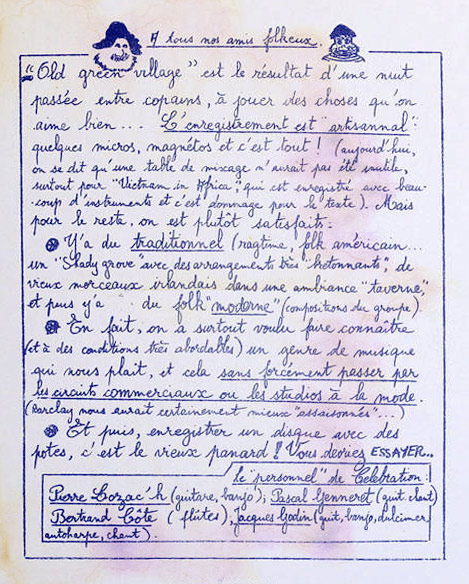 A tous nos amis folkeux.
"Old green village" est le résultat d'une nuit
passée entre copains, à jouer des choses qu'on
aime bien... L'enregistrement est "artisannal":
quelques micros, magnétos et c'est tout ! (aujourd'hui,
on se dit qu'une table de mixage n'aurait pas été inutile,
surtout pour "Vietnam in Africa", qui est enregistré avec beau-
-coup d'instruments et c'est dommage pour le texte). Mais
pour le reste, on est plutôt satisfaits:
Y'a du traditionnel (ragtime, folk américain...
un "Shady grove" avec des arrangements très "hetonnants", de
vieux morceaux irlandais dans une ambiance "taverne",
et puis y'a du folk "moderne" (compositions du groupe).
En fait, on a surtout voulu faire connaître
(et à des conditions très abordables) un genre de musique
qui nous plait, et cela sans forcément passer par
les circuits commerciaux ou les studios à la mode.
(Barclay nous aurait certainement mieux "assaisonnés"...)
Et puis, enregistrer un disque avec des
potes, c'est le vieux panard ! Vous devriez ESSAYER...
Le "personnel" de Celebration:
Pierre Lozac'h (guitare, banjo); Pascal Genneret (guit. chant)
Bertrand Côte (flûtes), Jacques Godin (guit, banjo, dulcimer
autoharpe, chant).